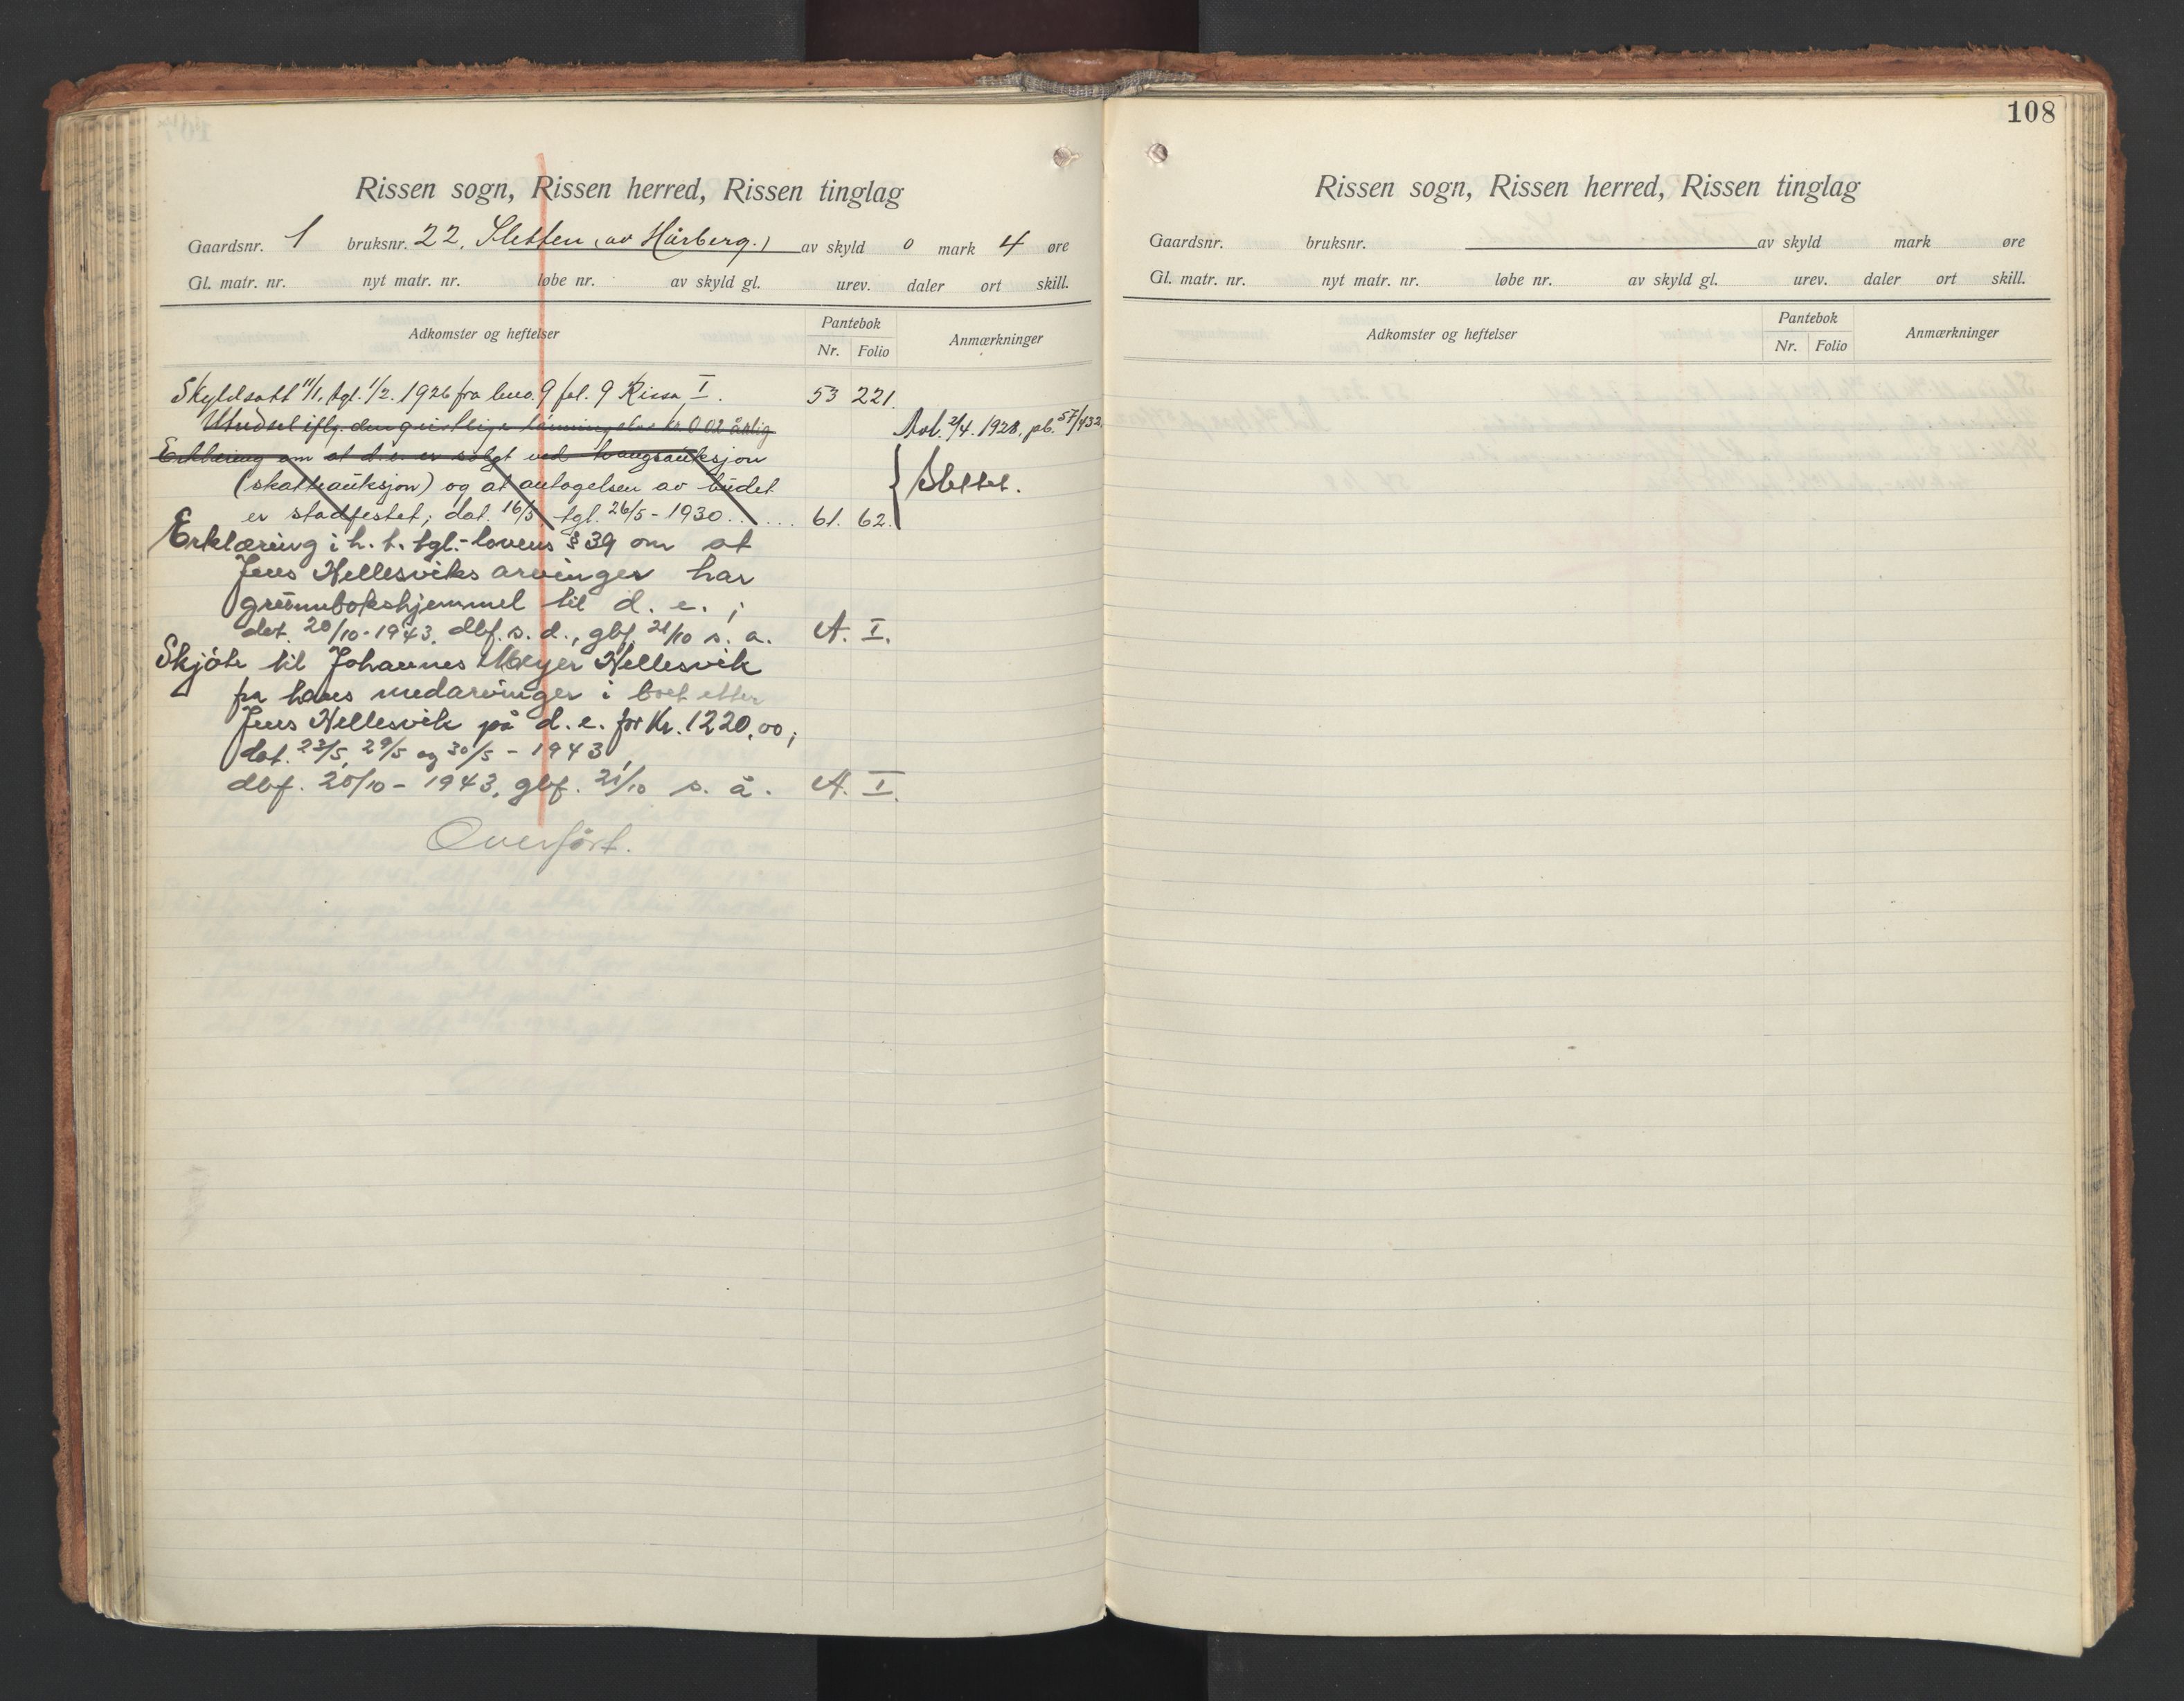 Rissen sogn, Rissen herred, Rissen tinglag
Gaardsnr. 1 bruksnr. 22, Sletten (av Hårberg.) av skyld 0 mark 4 øre
Gl. matr. nr. nyt matr. nr. løbe nr. av skyld gl. urev. daler ort skill.
Adkomster og heftelser Pantebok Nr. Folio Anmærkninger
Skyldsatt 11/1, tgl. 1/2. 1926 fra bno. 9 fol. 9 Rissa I. 53 221.
Utudsel iflg. den geistlige kr. 0.02 årlig Avl. 2/4. 1928. pb. 57/432.
Erklæring om at d. e. er solgt ved tvangsauksjon
(skatteauksjon) og at antagelsen av budet Slettet.
er stadfestet; dat. 16/5 tgl. 26/5 - 1930. . . . . . 61. 62.
Erklæring i h. t. tgl.-lovens § 39 om at
Jens Hellesviks arvinger har
grunnbokshjemmel til d. e. ;
dat. 20/10-1943, dbf. s. d., gbf. 21/10 s. a. A. I.
Skjöte til Johannes Meyer Hellesvik
fra hans medarvinger i boet etter
Jens Hellesvik på d. e. for Kr. 1220,00;
dat. 23/5, 29/5 og 30/5 - 1943,
dbf. 20/10 - 1943, gbf. 21/10 s. å. A. I.
Overfört.
108
Rissen sogn, Rissen herred, Rissen tinglag
Gaardsnr. bruksnr. av skyld mark øre
Gl. matr. nr. nyt matr. nr. løbe nr. av skyld gl. urev. daler ort skill.
Adkomster og heftelser Pantebok Nr. Folio Anmærkninger